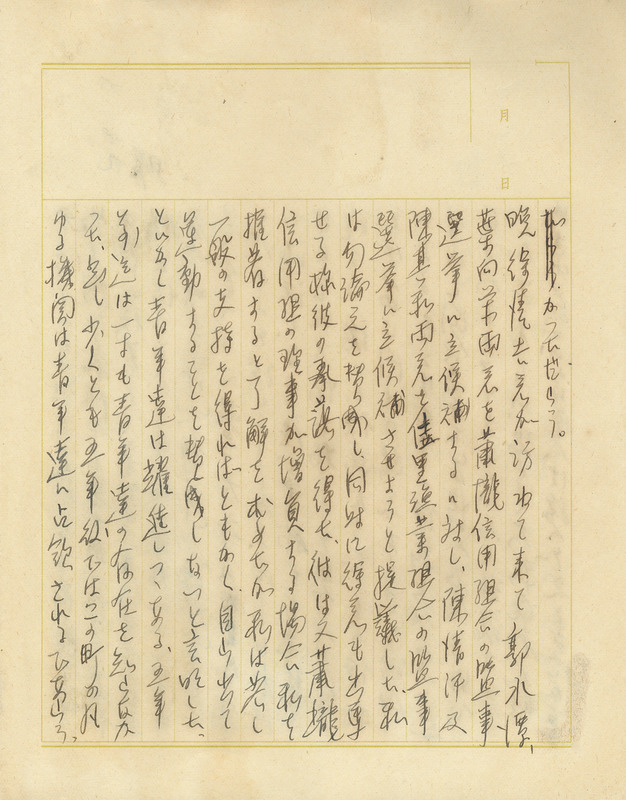 月
日
かつただらう。
晩、徐清吉君が訪れて来て 郭水潭、
葉向荣両君を蕭壠信用組合の監事
選挙に立候補するに対し、陳清汗及
陳其和両君を佳里漁業組合の監事
選挙に立候補させようと提議した。私
は勿論之を賛成し、同時に徐君も出馬
せる様彼の承諾を得た。彼は又蕭壠
信用組の理事が増員する場合、私を
推薦すると了解を求めたが私は若し
一般の支持を得ればともかく、自ら出て
運動することを賛成しないと言明した。
とにかく青年達は躍進しつゝある。五年
前迄は一寸も青年達の存在を知らなか
つた。然し少くとも五年後ではこの町の凡
ゆる機関は青年達に占領されるであらう。